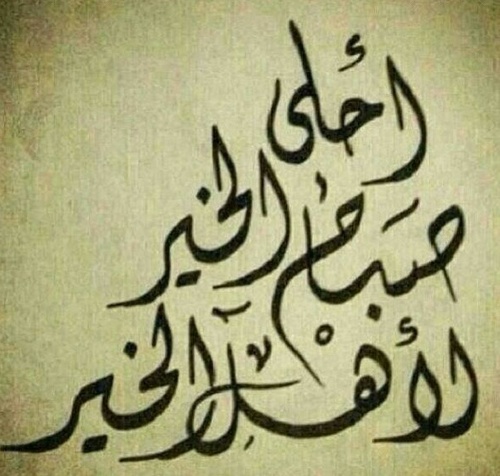 أحلى
صباح الخير
لأهل الخير